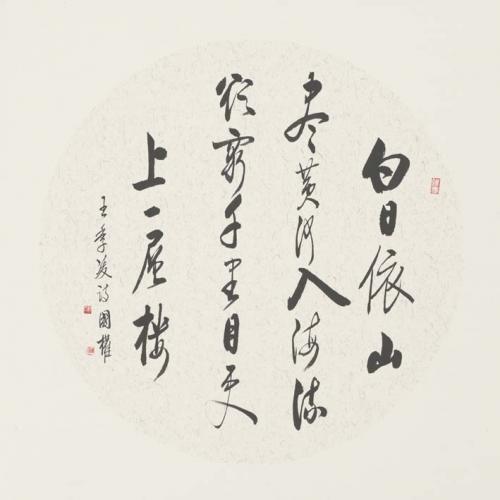 白日依山
尽黄河入海流
欲穷千里目更
上一层楼
王季凌诗国权